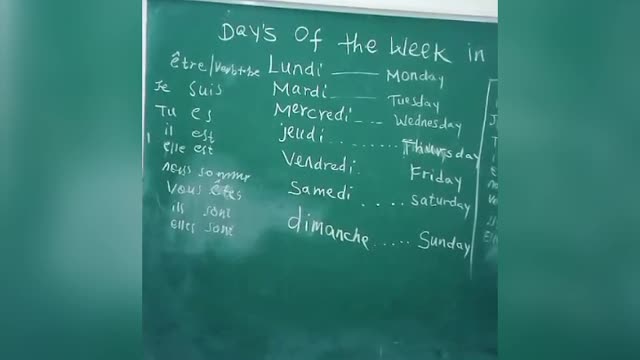 Day's of the Week in
être/verb to be
Je suis
Tu es
il est
elle est
nous somme
Vous êtes
ils sont
elles sont
Lundi —— Monday
Mardi —— Tuesday
Mercredi ---- Wednesday
jeudi ........ Thursday
Vendredi ..... Friday
Samedi ..... Saturday
dimanche ..... Sunday